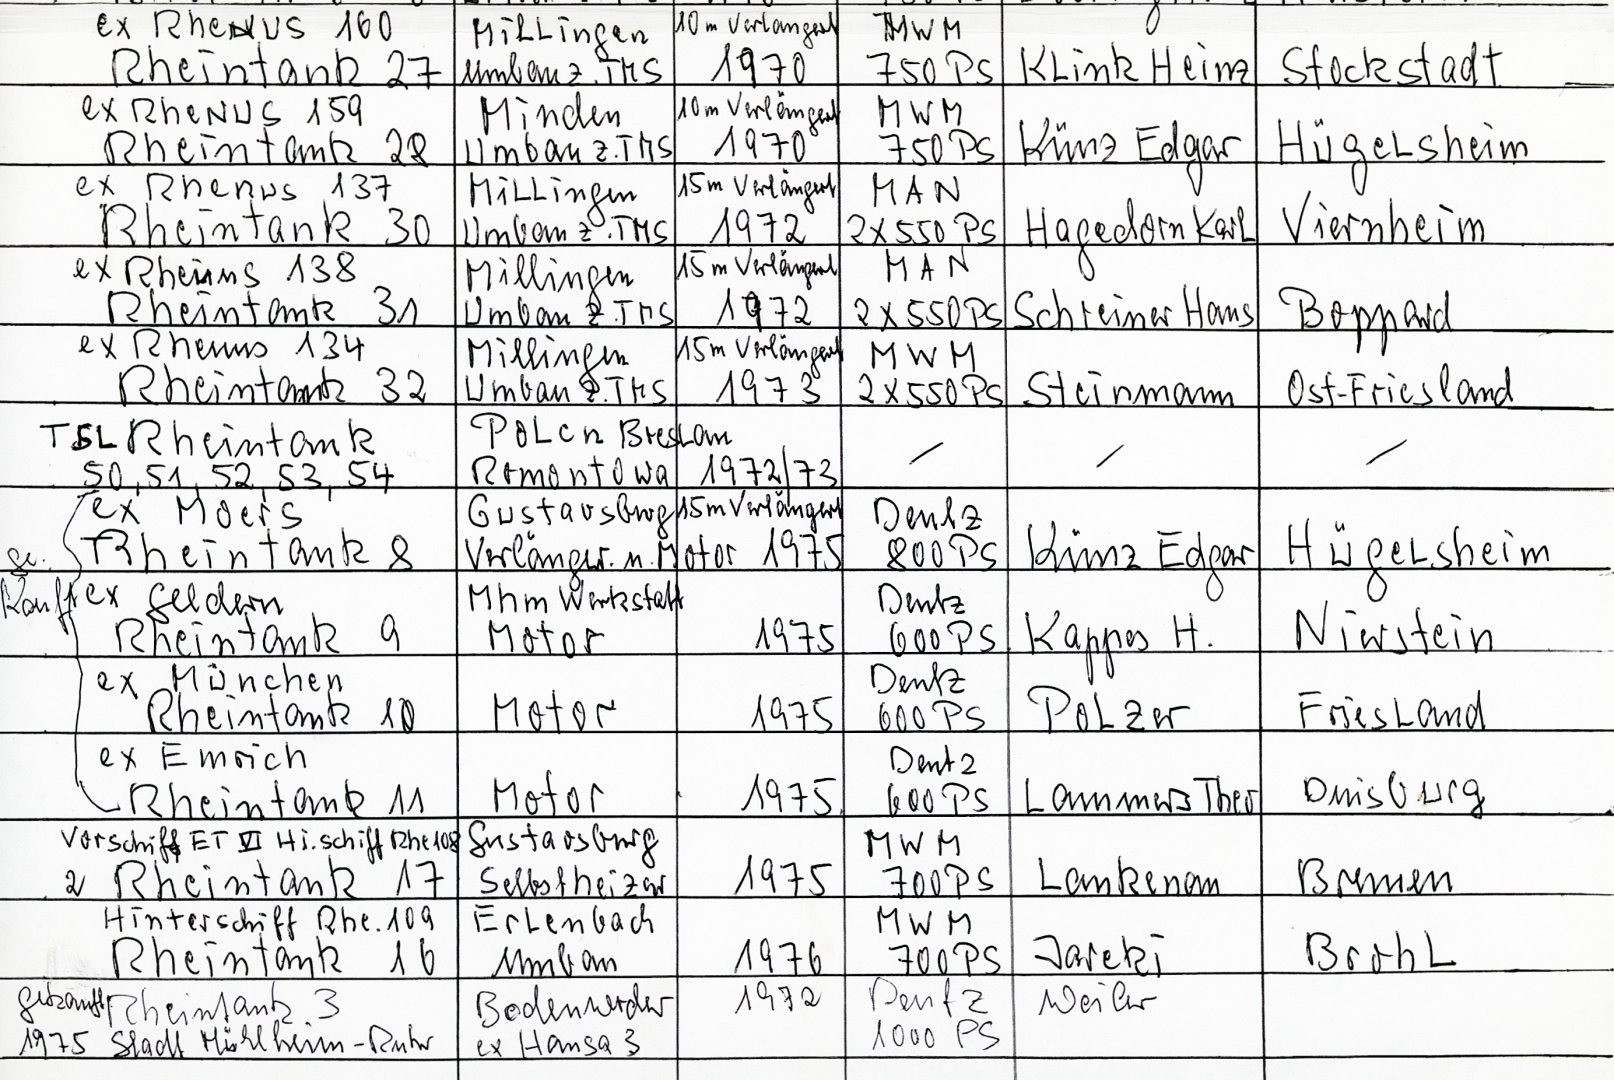 ex Rhenus 160 Millingen 10m Verlängert MWM
Rheintank 27 Umbau z. TMS 1970 750 PS Klink Heinz Stockstadt
ex Rhenus 159 Minden 10m Verlängert MWM
Rheintank 28 Umbau z. TMS 1970 750 PS Künz Edgar Hügelsheim
ex Rhenus 137 Millingen 15m Verlängert MAN
Rheintank 30 Umbau z. TMS 1972 2x550 PS Hagedorn Karl Viernheim
ex Rhenus 138 Millingen 15m Verlängert MAN
Rheintank 31 Umbau z. TMS 1972 2x550 PS Schreiner Hans Boppard
ex Rhenus 134 Millingen 15m Verlängert MWM
Rheintank 32 Umbau z. TMS 1973 2x550 PS Steinmann Ost-Friesland
TSL Rheintank Polen Breslau / / /
50, 51, 52, 53, 54 Romontowa 1972/73
ex Moers Gustavsburg 15m Verlängert Deutz
Rheintank 8 Verlänger. u. Motor 1975 800 PS Künz Edgar Hügelsheim
ge.
Kauft ex Geldern Mhm Werkstatt Deutz
Rheintank 9 Motor 1975 600 PS Kappes H. Nierstein
ex München Deutz
Rheintank 10 Motor 1975 600 PS Polzer Friesland
ex Emrich Deutz
Rheintank 11 Motor 1975 600 PS Lammers Theo Duisburg
Vorschiff ET VI Hi.schiff Rhe 108 Gustavsburg MWM
2 Rheintank 17 Selbstheizer 1975 700 PS Lankenau Bremen
Hinterschiff Rhe. 109 Erlenbach MWM
Rheintank 16 Umbau 1976 700 PS Jareki Brohl
gekauft Rheintank 3 Bodenwerder 1972 Deutz Weiler
1975 Stadt Mühlheim-Ruhr ex Hansa 3 1000 PS